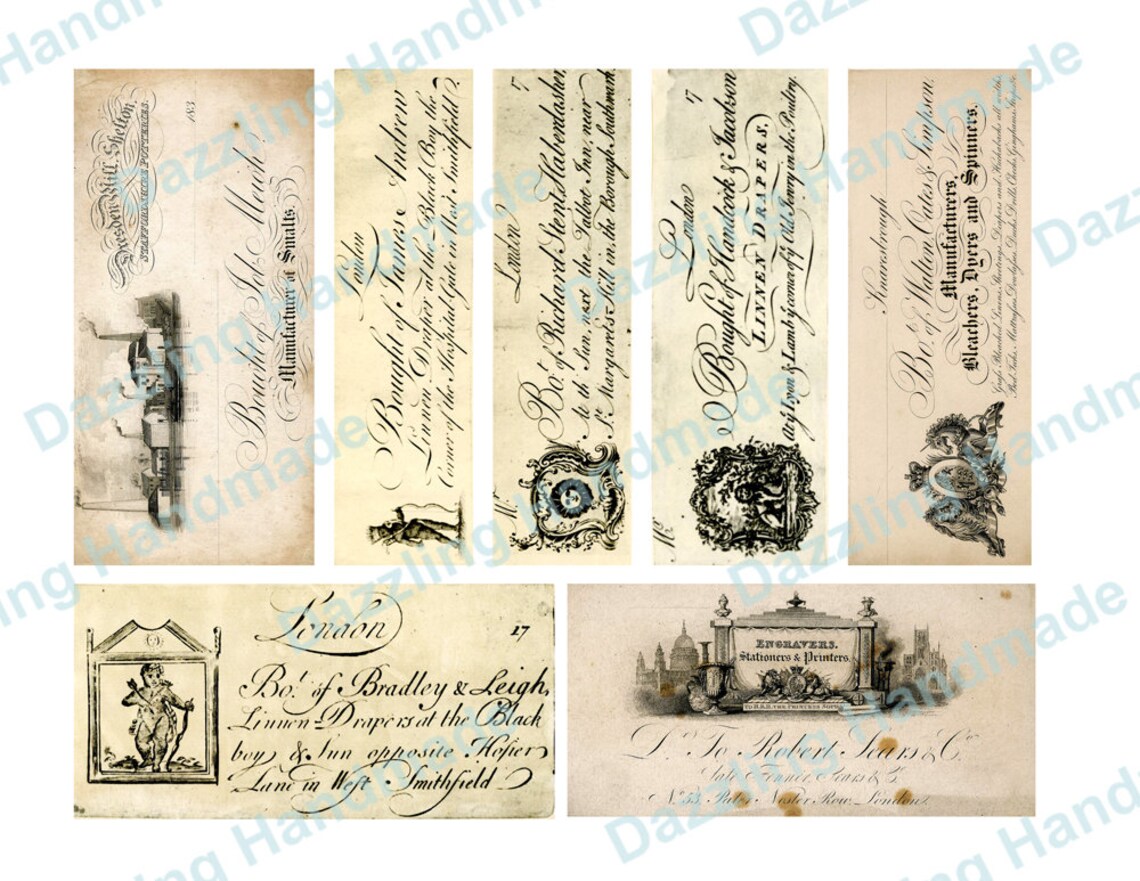 Dresden Hill, Shelton,
STAFFORDSHIRE POTTERIES.
183
Bought of Job Meigh
Manufacturer of Smalts.
London
Bought of James Andrew
Linnen Draper at the Black Boy the
Corner of the Hospital Gate in West Smithfield
London 17
Mr.
Bot. of Richard Stent Haberdasher,
At the Sun, next the Talbot Inn, near
St. Margarets Hill in the Borough Southwark.
London 17
Mrs.
Bought of Hancock & Jacobson
LINNEN DRAPERS,
at ye Lyon & Lamb ye corner of ye Old Jewry in the Poultry.
Knaresbrough
Bot. of Walton, Oates & Simpson.
Manufacturers,
Bleachers, Dyers and Spinners.
London 17
Bot. of Bradley & Leigh,
Linnen-Drapers at the Black
boy & Sun opposite Hosier
Lane in West Smithfield
ENGRAVERS,
Stationers & Printers,
TO H.R.H. THE PRINCESS SOPHIA
Dr. To Robert Sears & Co.
Late Fenner Sears & Co.
No. 53, Pater Noster Row, London.
Dazzling Handmade